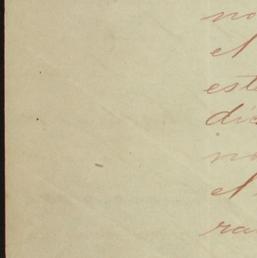 no
el
est
dic
no
el
ra